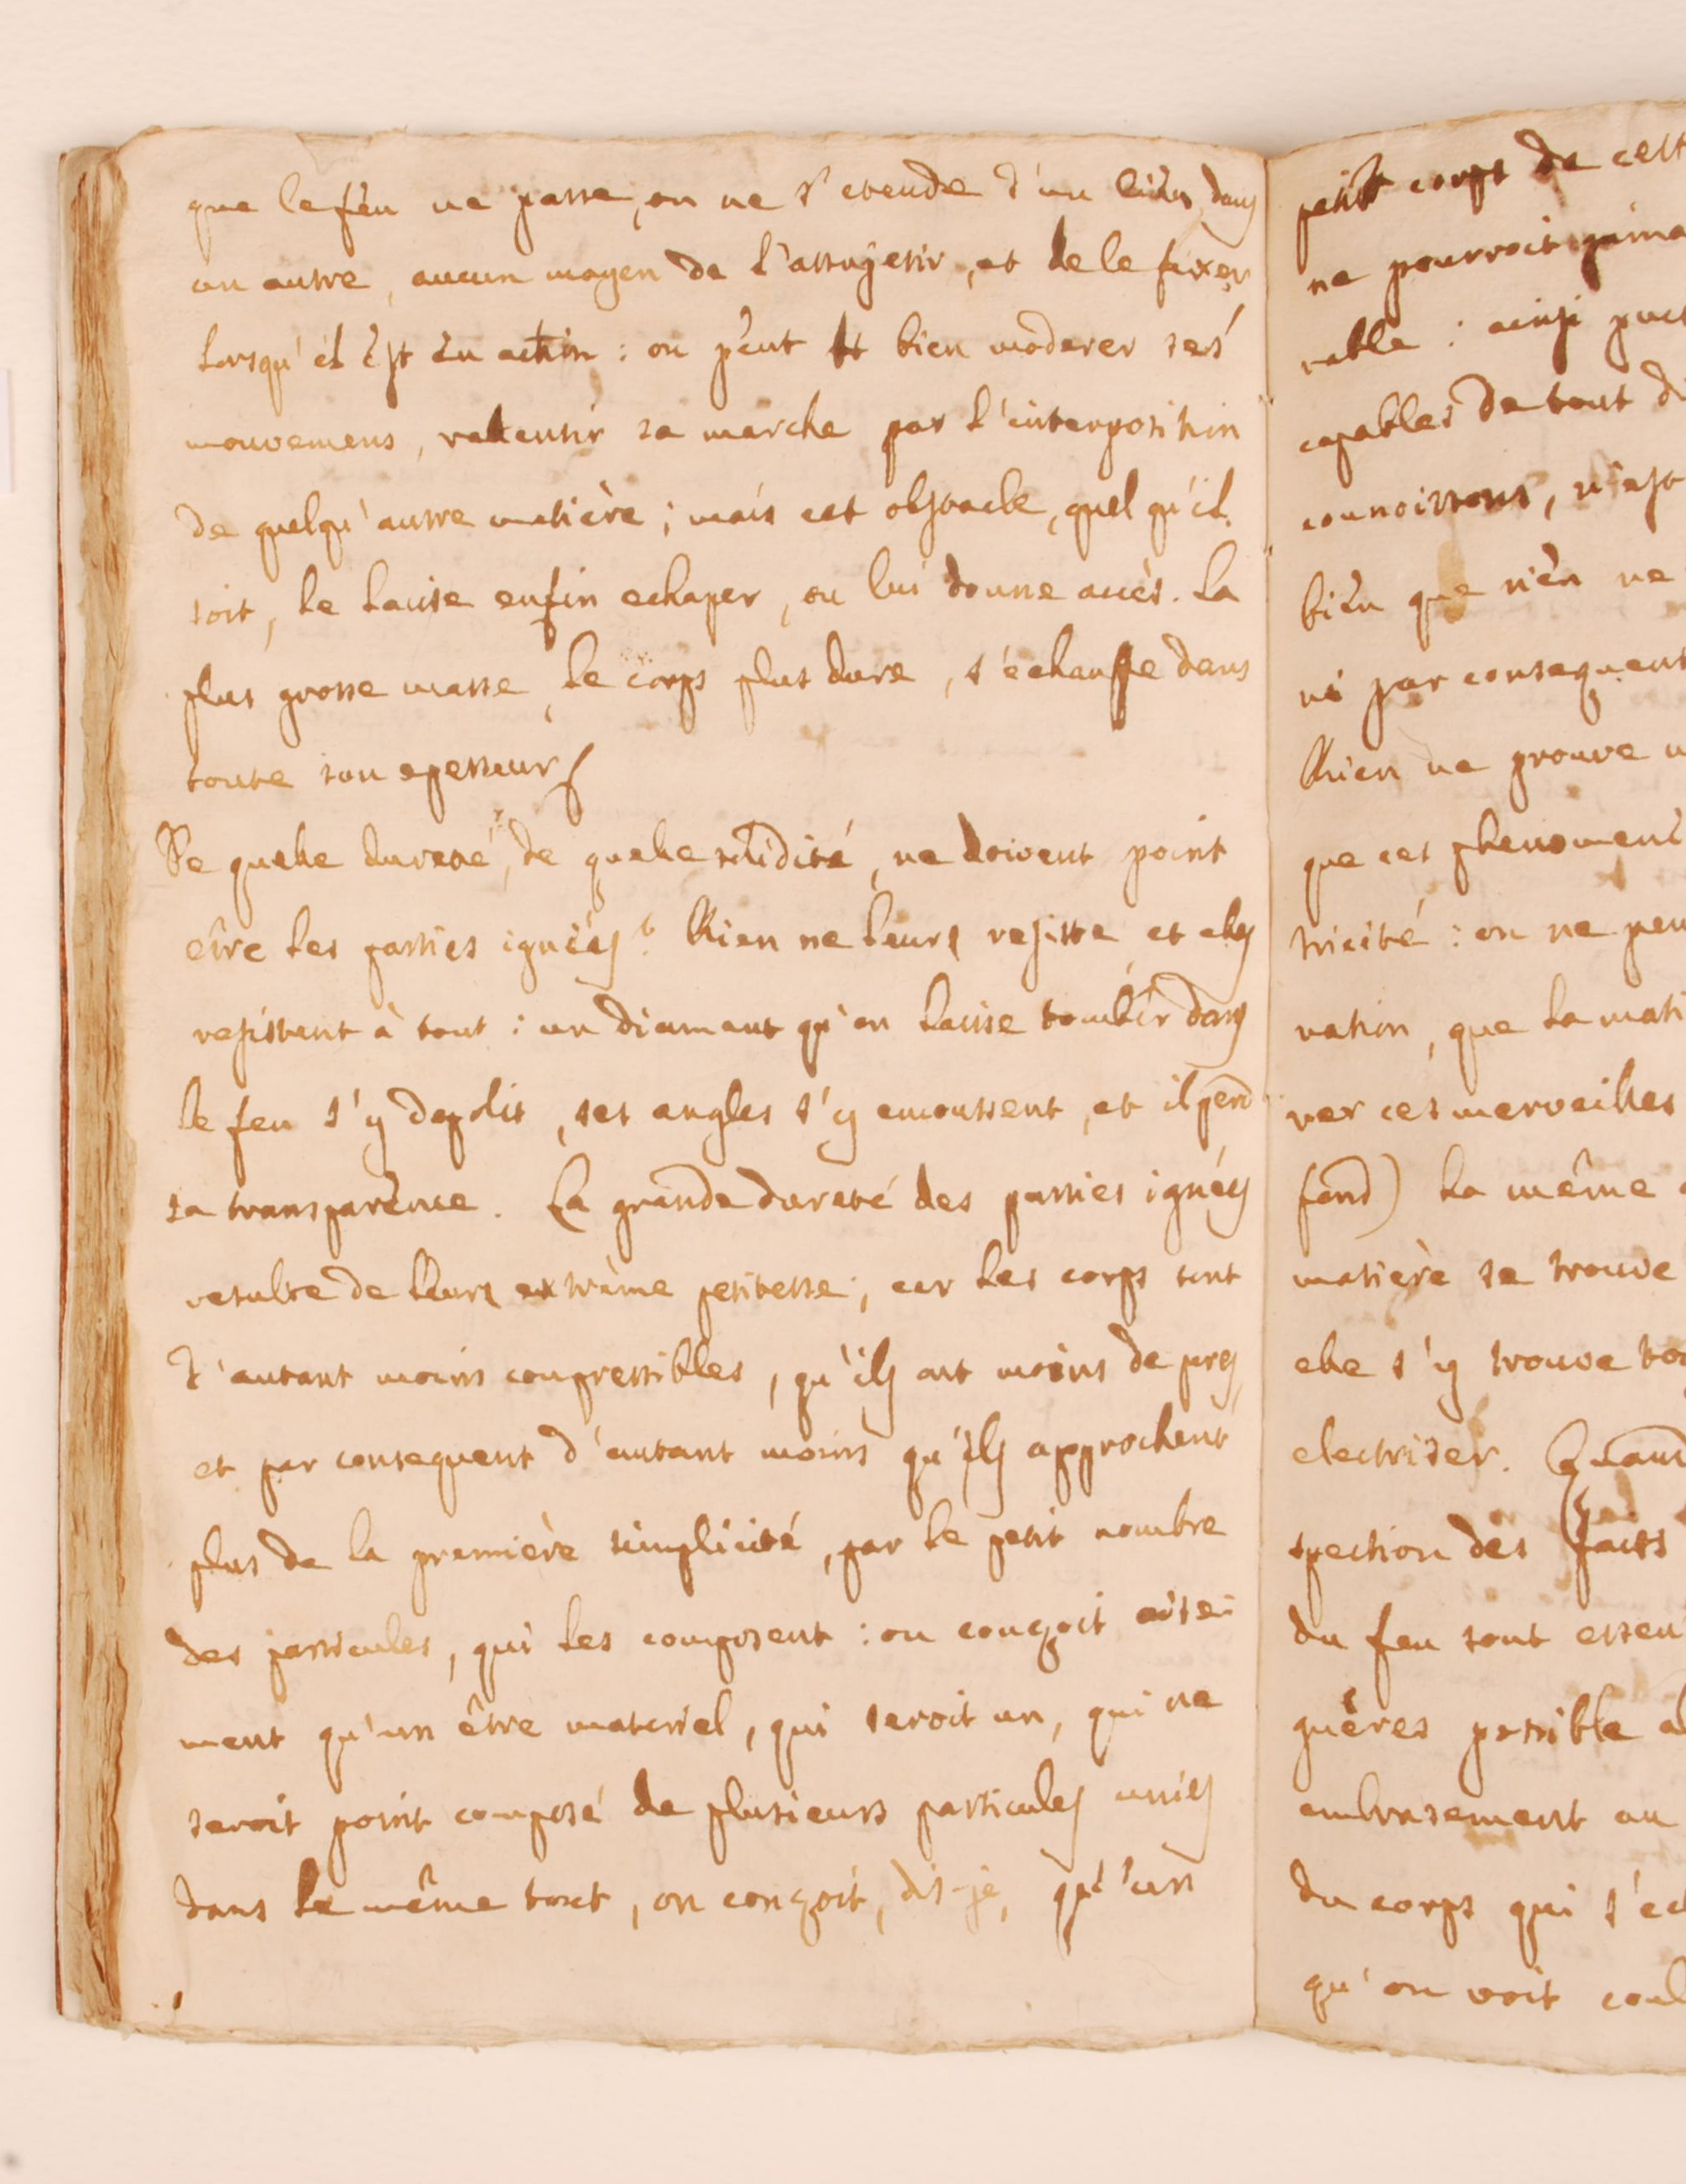 que le feu ne passe, ou ne s'etende d'un lieu, dans
un autre, aucun moyen de l'assujetir, et de le fixer
lorsqu'il est en action : on peut bien moderer ses
mouvemens, rallentir sa marche par l'interposition
de quelqu'autre matière ; mais cet obstacle, quel qu'il
soit, le laisse enfin echaper, ou lui donne accès. la
plus grosse masse, le corps plus dure, s'echauffe dans
toute son epesseur
De quelle dureté, de quelle solidité, ne doivent point
être les parties ignées ? Rien ne leurs resiste, et elles
resistent à tout : un diamant qu'on laisse tomber dans
le feu s'y depolit, ses angles s'y emoussent, et il perd
sa transparence. La grande dureté des parties ignées
resulte de leurs extrème petitesse ; car les corps sont
d'autant moins compressibles, qu'ils ont moins de pores,
et par consequent d'autant moins qu'ils approchent
plus de la première simplicité, par le petit nombre
des particules, qui les composent : on conçoit aise-
ment qu'un être materiel, qui seroit un, qui ne
seroit point composé de plusieurs particules unies
dans le même tout, on conçoit, dis-je, qu'un
petit corps de cett
ne pourroit jama
rable : ainsi puis
capables de tout di
connoissons, n'est
bien que rien ne
ni par consequent
Rien ne prouve
que ces phenomene
tricité : on ne peu
vation, que la mati
ver ces merveilles
fond) la même
matière se trouve
elle s'y trouve to
electriser. Quand
spection des faits
du feu sont essen
guères possible
embrasement ou
du corps qui s'ec
qu'on voit coul